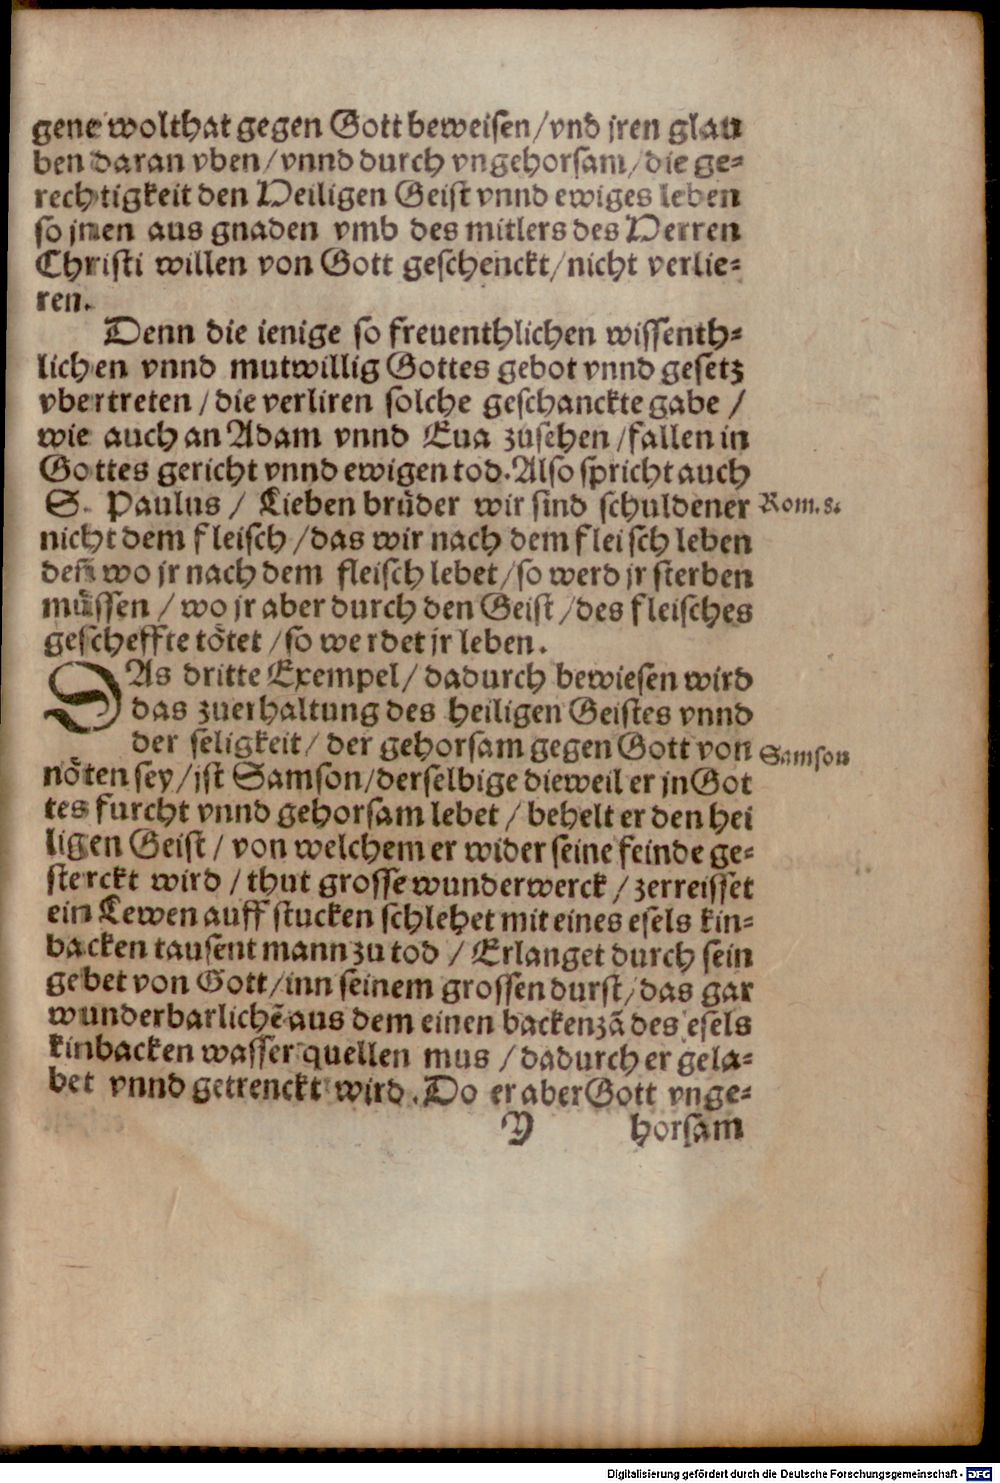 gene wolthat gegen Gott beweisen/vnd jren glau
ben daran vben/vnnd durch vngehorsam/die ge-
rechtigkeit den Heiligen Geist vnnd ewiges leben
so jnen aus gnaden vmb des mitlers des Herren
Christi willen von Gott geschenckt/nicht verlie-
ren.
Denn die ienige so freuenthlichen wissenth-
lichen vnnd mutwillig Gottes gebot vnnd gesetz
vbertreten/die verliren solche geschanckte gabe/
wie auch an Adam vnnd Eua zusehen/fallen in
Gottes gericht vnnd ewigen tod. Also spricht auch
S. Paulus/Lieben brůder wir sind schuldener Rom. 8.
nicht dem fleisch/das wir nach dem fleisch leben
deñ wo jr nach dem fleisch lebet/so werd jr sterben
můssen/wo jr aber durch den Geist/des fleisches
gescheffte tötet/so werdet jr leben.
DAs dritte Exempel/dadurch bewiesen wird
das zuerhaltung des heiligen Geistes vnnd
der seligkeit/der gehorsam gegen Gott von Samson
nöten sey/jst Samson/derselbige dieweil er jn Got
tes furcht vnnd gehorsam lebet/behelt er den hei
ligen Geist/von welchem er wider seine feinde ge-
sterckt wird/thut grosse wunderwerck/zerreisset
ein Lewen auff stucken schlehet mit eines esels kin-
backen tausent mann zu tod/Erlanget durch sein
gebet von Gott/inn seinem grossen durst/das gar
wunderbarlichẽ aus dem einen backenzã des esels
kinbacken wasser quellen mus/dadurch er gela-
bet vnnd getrenckt wird. Do er aber Gott vnge-
Y horsam
Digitalisierung gefördert durch die Deutsche Forschungsgemeinschaft - DFG